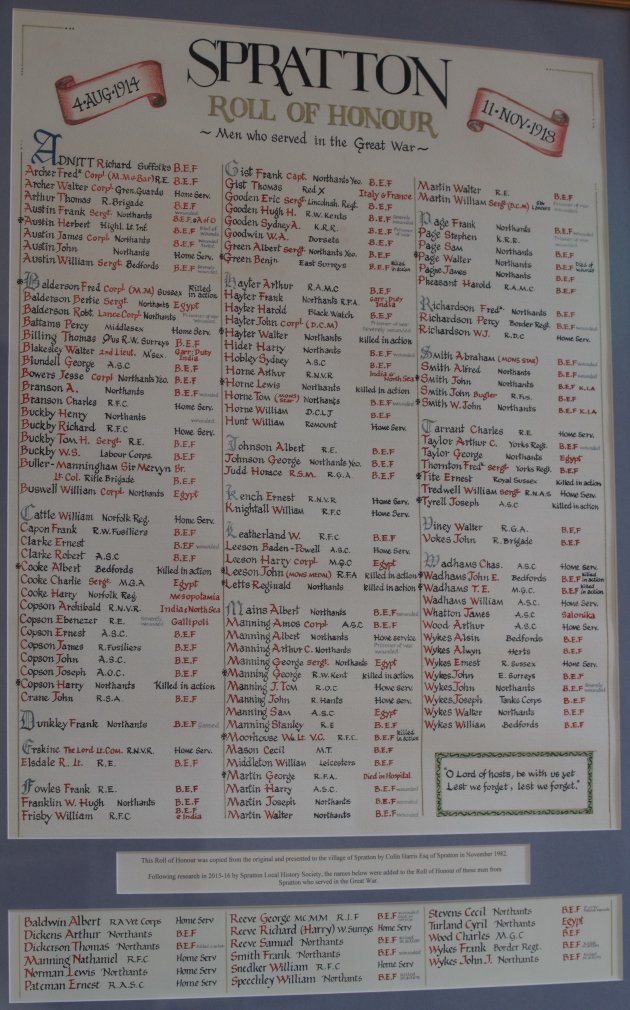 SPRATTON
4·AUG·1914
ROLL OF HONOUR
11·NOV·1918
~ Men who served in the Great War ~
ADNITT Richard Suffolks B.E.F
Archer Fredk Corpl (M.M & Bar) R.E B.E.F
Archer Walter Corpl Gren. Guards Home Serv.
Arthur Thomas R. Brigade B.E.F
Austin Frank Sergt. Northants B.E.F & A of O
Austin Herbert Highl. Lt. Inf. B.E.F
Austin James Corpl Northants B.E.F
Austin John Northants Home Serv.
Austin William Sergt. Bedfords B.E.F
Balderson Fred Corpl (M.M) Sussex Killed in action
Balderson Bertie Sergt. Northants Egypt
Balderson Robt. Lance Corpl Northants Prisoner of war
Battams Percy Middlesex Home Serv.
Billing Thomas R.W. Surreys B.E.F
Blakesley Walter 2nd Lieut. M'sex. Garr: Duty India
Blundell George A.S.C B.E.F
Bowers Jesse Corpl Northants Yeo. B.E.F
Branson A. Northants B.E.F wounded
Branson Charles R.F.C Home Serv.
Buckby Henry Northants wounded
Buckby Richard R.F.C Home Serv.
Buckby Tom H. Sergt. R.E. B.E.F
Buckby W.S. Labour Corps. B.E.F
Buller-Manningham Sir Mervyn Br.
Lt. Col. Rifle Brigade B.E.F
Buswell William Corpl Northants Egypt
Cattle William Norfolk Reg. Home Serv.
Capon Frank R.W. Fusiliers B.E.F
Clarke Ernest B.E.F wounded
Clarke Robert A.S.C B.E.F
Cooke Albert Bedfords Killed in action
Cooke Charlie Sergt. M.G.A Egypt
Cooke Harry Norfolk Reg. Mesopotamia
Copson Archibald R.N.V.R. India & North Sea
Copson Ebenezer R.E. Severely wounded Gallipoli
Copson Ernest A.S.C. B.E.F
Copson James R. Fusiliers B.E.F
Copson John A.S.C. B.E.F
Copson Joseph A.O.C. B.E.F
Copson Harry Northants Killed in action
Crane John R.S.A. B.E.F
Dunkley Frank Northants B.E.F Gassed
Erskine The Lord Lt. Com. R.N.V.R. Home Serv.
Elsdale R. Lt. R.E. B.E.F
Fowles Frank R.E. B.E.F
Franklin W. Hugh Northants B.E.F
Frisby William R.F.C B.E.F & India
Gist Frank Capt. Northants Yeo. B.E.F
Gist Thomas Red X Italy & France
Gooden Eric Sergt. Lincolnsh. Regt. B.E.F
Gooden Hugh H. R.W. Kents B.E.F Severely wounded
Gooden Sydney A. K.R.R. B.E.F
Goodwin W.A. Dorsets B.E.F
Green Albert Sergt Northants Yeo. B.E.F
Green Benjn East Surreys B.E.F Killed in action
Hayter Arthur R.A.M.C B.E.F
Hayter Frank Northants R.F.A. B.E.F
Hayter Harold Black Watch Garr: Duty India
Hayter John Corpl (D.C.M) B.E.F
Hayter Walter Northants Killed in action
Hider Harry Northants B.E.F wounded
Hobley Sydney A.S.C B.E.F
Horne Arthur R.N.V.R India & North Sea
Horne Lewis Northants Killed in action
Horne Tom (MONS Star) Northants B.E.F wounded
Horne William D.C.L.I B.E.F
Hunt William Remount Home Serv.
Johnson Albert R.E. B.E.F
Johnson George Northants Yeo. B.E.F
Judd Horace R.S.M. R.G.A. B.E.F
Kench Ernest R.N.V.R Home Serv.
Knightall William R.F.C Home Serv.
Leatherland W. R.F.C B.E.F
Leeson Baden-Powell A.S.C. Home Serv.
Leeson Harry Corpl M.G.C Egypt
Leeson John (MONS MEDAL) R.F.A Killed in action
Letts Reginald Northants Killed in action
Mains Albert Northants B.E.F wounded
Manning Amos Corpl A.S.C B.E.F
Manning Albert Northants Home service
Manning Arthur C. Northants Prisoner of war wounded
Manning George Sergt. Northants Egypt
Manning George R.W. Kent Killed in action
Manning J. Tom R.O.C Home serv.
Manning John R. Hants Home serv.
Manning Sam A.S.C Egypt
Manning Stanley R.E B.E.F
Moorhouse Wm Lt. V.C. R.F.C. B.E.F Killed in action
Mason Cecil M.T. B.E.F
Middleton William Leicesters B.E.F
Martin George R.F.A. Died in Hospital
Martin Harry A.S.C. B.E.F wounded
Martin Joseph Northants B.E.F wounded
Martin Walter Northants B.E.F wounded
Martin Walter R.E. B.E.F
Martin William Sergt (D.C.M) 5th Lancers Prisoner of war wounded
Page Frank Northants B.E.F wounded
Page Stephen K.R.R. Prisoner of war wounded
Page Sam Northants B.E.F
Page Walter Northants B.E.F Died of wounds
Page James Northants B.E.F
Pheasant Harold R.A.M.C. B.E.F
Richardson Fredk Northants B.E.F
Richardson Percy Border Regt. B.E.F wounded
Richardson W.J. R.D.C Home Serv.
Smith Abraham (MONS STAR) B.E.F wounded
Smith Alfred Northants B.E.F wounded
Smith John Northants B.E.F K.I.A
Smith John Bugler R. Fus. B.E.F
Smith W. John Northants B.E.F K.I.A
Tarrant Charles R.E. Home Serv.
Taylor Arthur C. Yorks Regt. B.E.F wounded
Taylor George Northants Egypt
Thornton Fredk Sergt Yorks Regt. B.E.F
Tite Ernest Royal Sussex Killed in action
Tredwell William Sergt R.N.A.S Home Serv.
Tyrell Joseph A.S.C Killed in action
Viney Walter R.G.A. B.E.F
Vokes John R. Brigade B.E.F
Wadhams Chas. A.S.C Home Serv.
Wadhams John E. Bedfords B.E.F Killed in action
Wadhams T.E. M.G.C. B.E.F Killed in action
Wadhams William A.S.C. Home Serv.
Whatton James A.S.C Salonika
Wood Arthur A.S.C Home Serv.
Wykes Alsin Bedfords B.E.F
Wykes Alwyn Herts B.E.F
Wykes Ernest R. Sussex Home Serv.
Wykes John E. Surreys B.E.F
Wykes John Northants B.E.F Severely wounded
Wykes Joseph Tanks Corps B.E.F
Wykes Walter Northants B.E.F
Wykes William Bedfords B.E.F
"O Lord of hosts, be with us yet
Lest we forget, lest we forget."
This Roll of Honour was copied from the original and presented to the village of Spratton by Colin Harris Esq of Spratton in November 1982.
Following research in 2015-16 by Spratton Local History Society, the names below were added to the Roll of Honour of those men from
Spratton who served in the Great War.
Baldwin Albert R A Vet Corps Home Serv
Dickens Arthur Northants B.E.F
Dickerson Thomas Northants B.E.F Killed in action
Manning Nathaniel R.F.C Home Serv
Norman Lewis Northants Home Serv
Pateman Ernest R.A.S.C Home Serv
Reeve George MC MM R.I.F B.E.F
Reeve Richard (Harry) W. Surreys Home Serv
Reeve Samuel Northants B.E.F
Smith Frank Northants B.E.F wounded
Snedker William R.F.C Home Serv
Speechley William Northants B.E.F
Stevens Cecil Northants B.E.F
Turland Cyril Northants Egypt
Wood Charles M.G.C B.E.F
Wykes Frank Border Regt. B.E.F
Wykes John J. Northants B.E.F